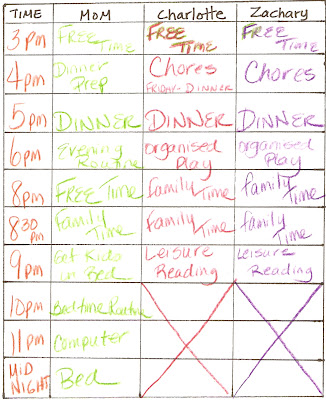 TIME MOM Charlotte Zachary
3pm FREE TIME FREE TIME FREE TIME
4pm Dinner Prep Chores FRIDAY-DINNER Chores
5pm DINNER DINNER DINNER
6pm Evening Routine organised Play organised Play
8pm FREE Time family Time family Time
8 30 pm Family Time Family Time family Time
9pm Get Kids in Bed Leisure Reading Leisure Reading
10pm Bedtime Routine
11pm Computer
MID NIGHT Bed